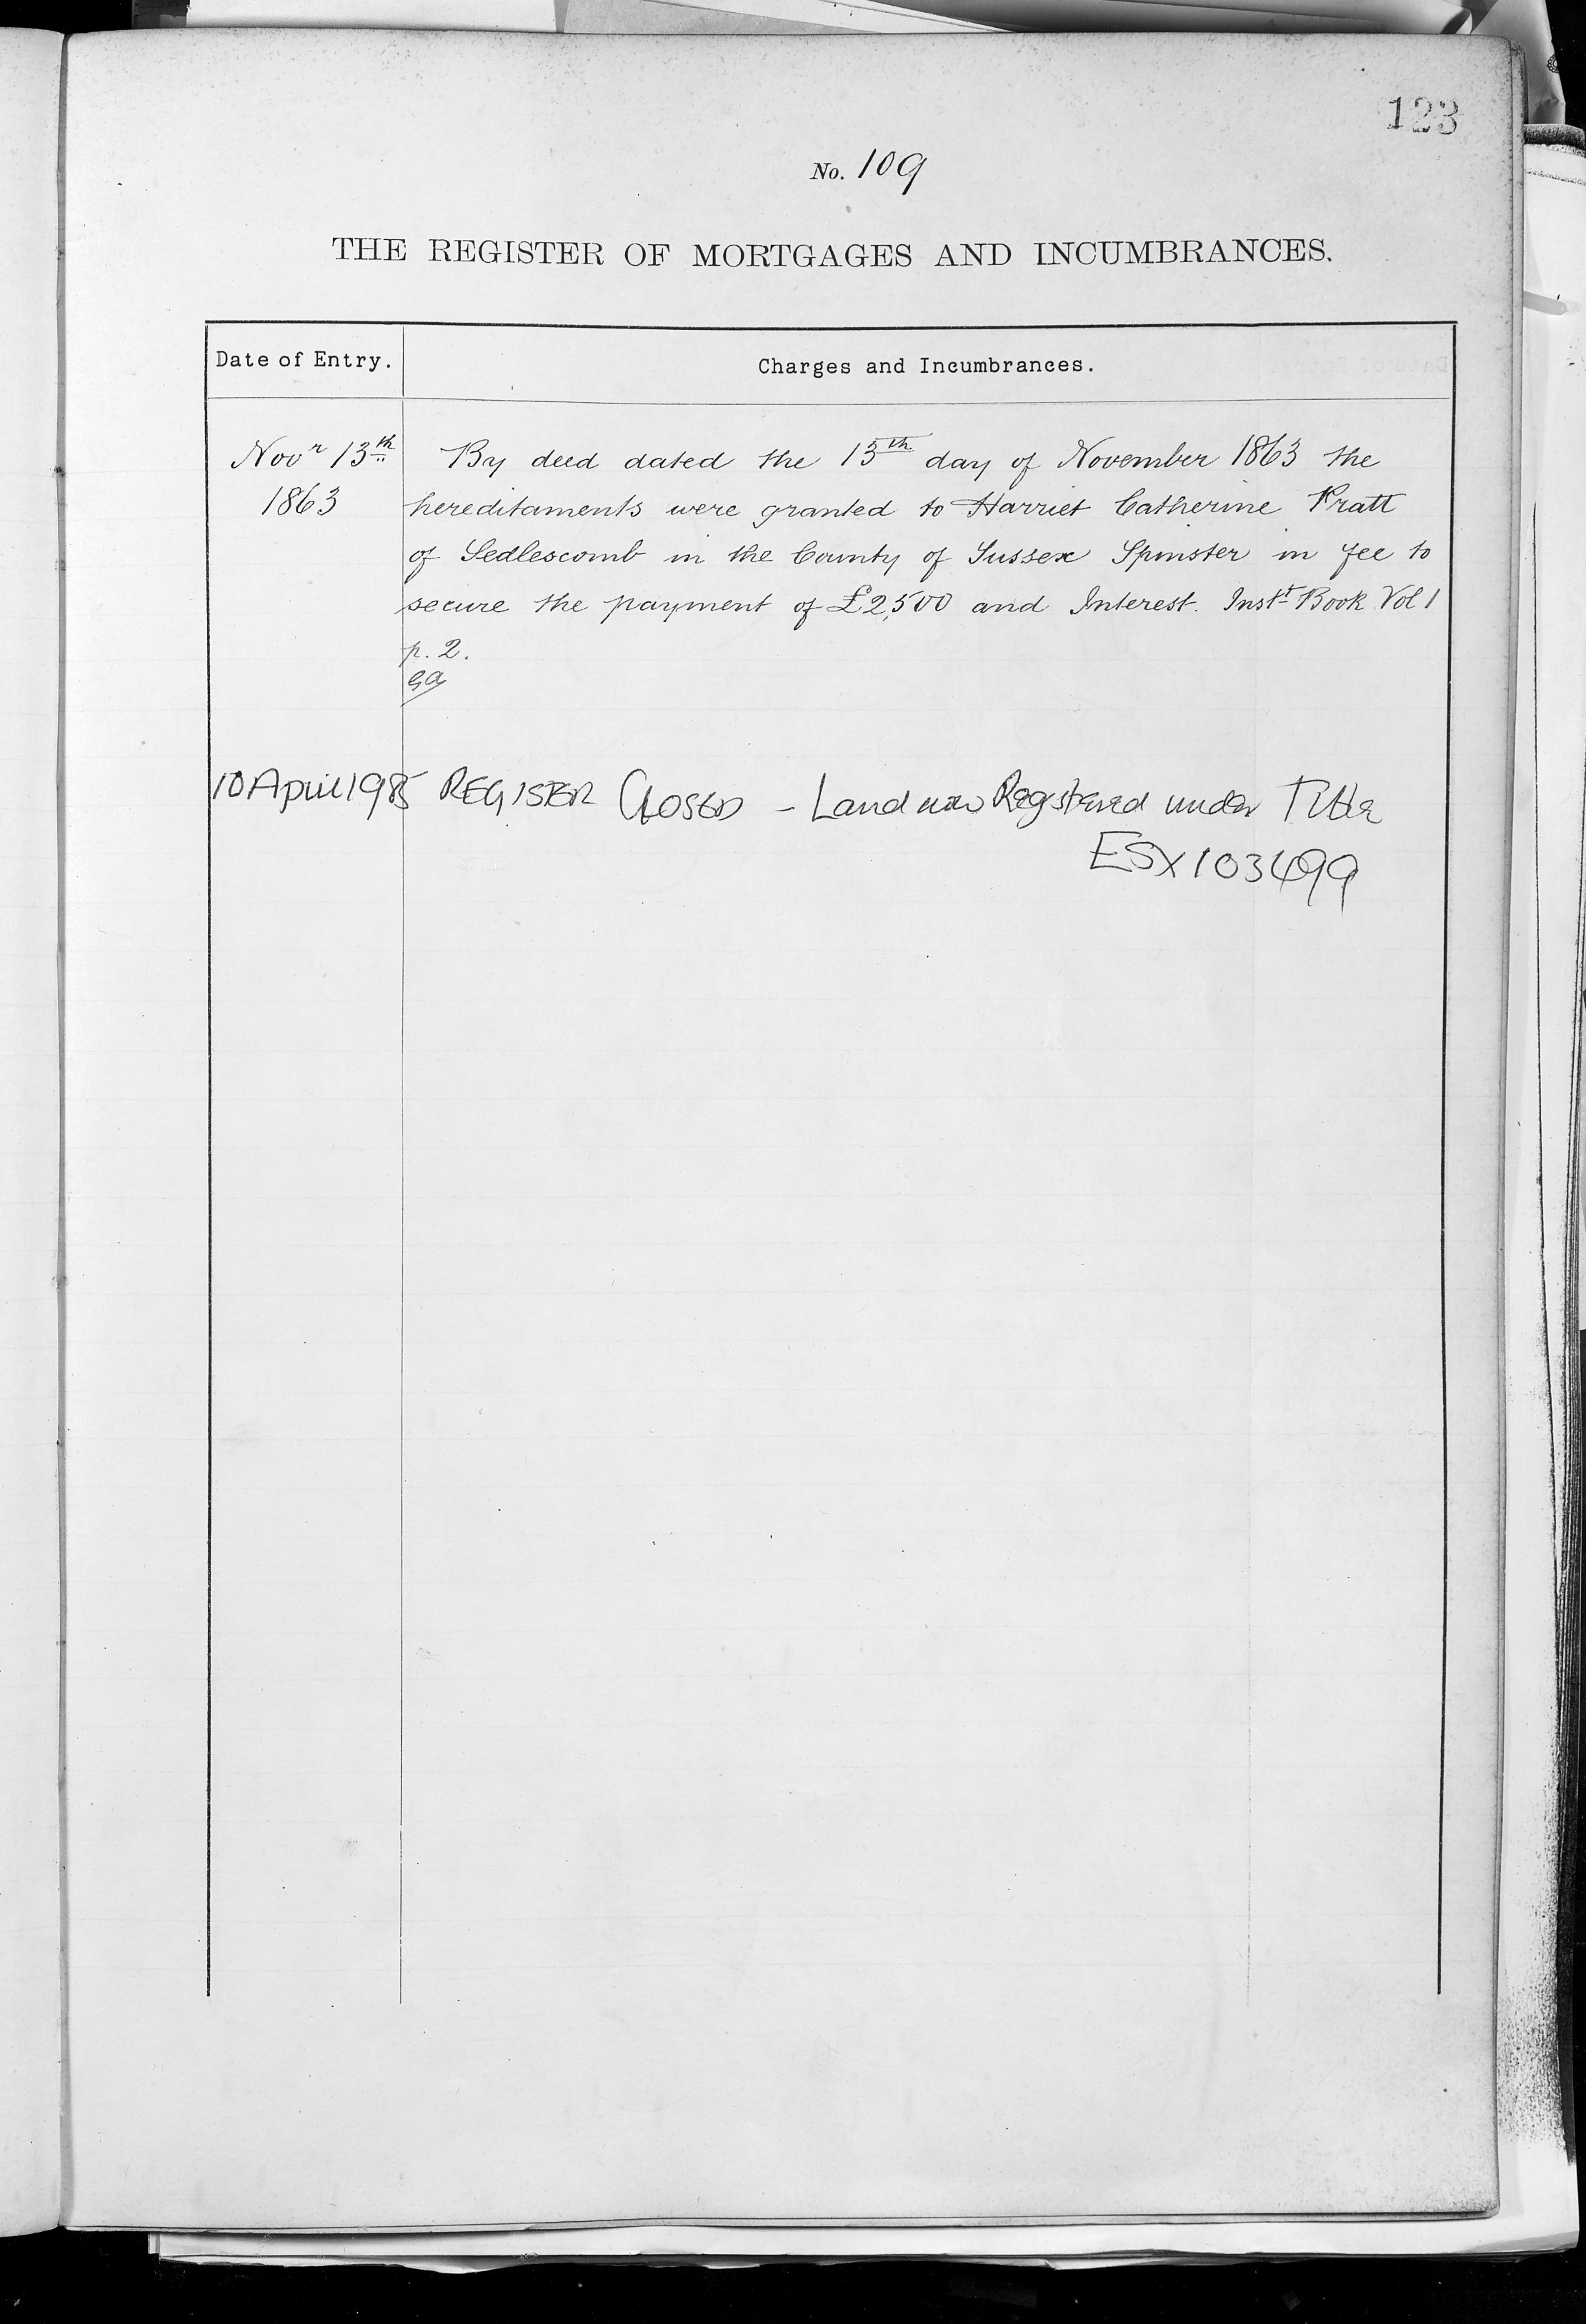 123
No. 109
THE REGISTER OF MORTGAGES AND INCUMBRANCES.
Date of Entry. Charges and Incumbrances.
Novr 13th By deed dated the 13th day of November 1863 the
1863 hereditaments were granted to Harriet Catherine Pratt
of Sedlescomb in the County of Sussex Spinster in fee to
secure the payment of £2,500 and Interest. Instt Book Vol 1
p. 2.
GA
10 April 1985 REGISTER CLOSED - Land now Registered under Title
ESX103499